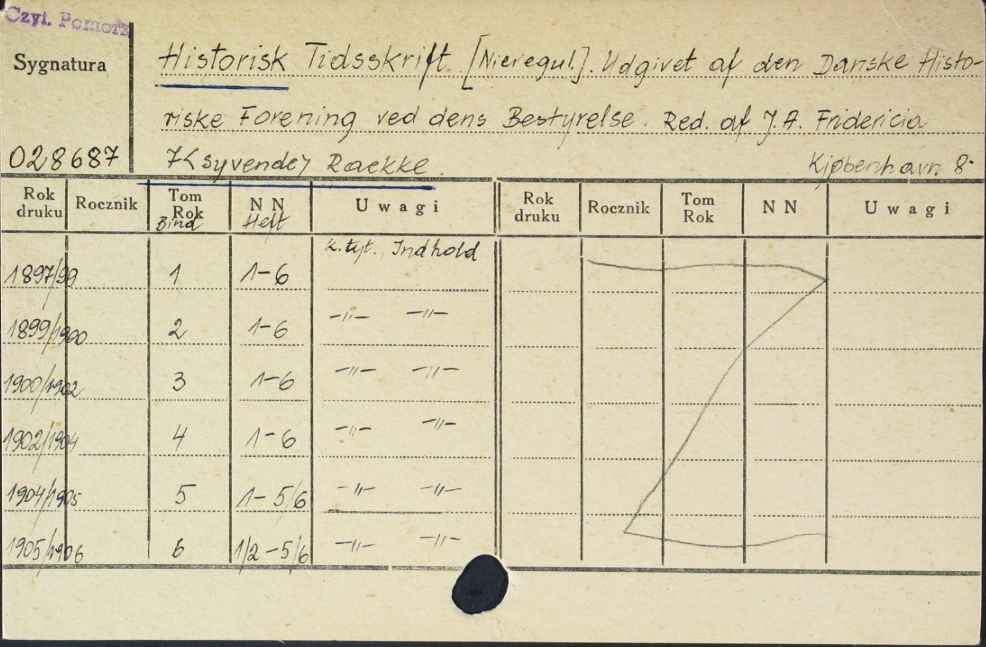 Czyt. Pomorz
Sygnatura
Historisk Tidsskrift. [Nieregul.]. Udgivet af den Danske Histo-
riske Forening ved dens Bestyrelse. Red. af J. A. Fridericia
028687 7<syvende> Raekke. Kjøbenhavn 8°
Rok druku Rocznik Tom Rok Bind N N Heft Uwagi Rok druku Rocznik Tom Rok N N Uwagi
k. tyt., Indhold
1897/99 1 1-6
1899/1900 2 1-6 -"- -"-
1900/1902 3 1-6 -"- -"-
1902/1904 4 1-6 -"- -"-
1904/1905 5 1-5/6 -"- -"-
1905/1906 6 1/2-5/6 -"- -"-